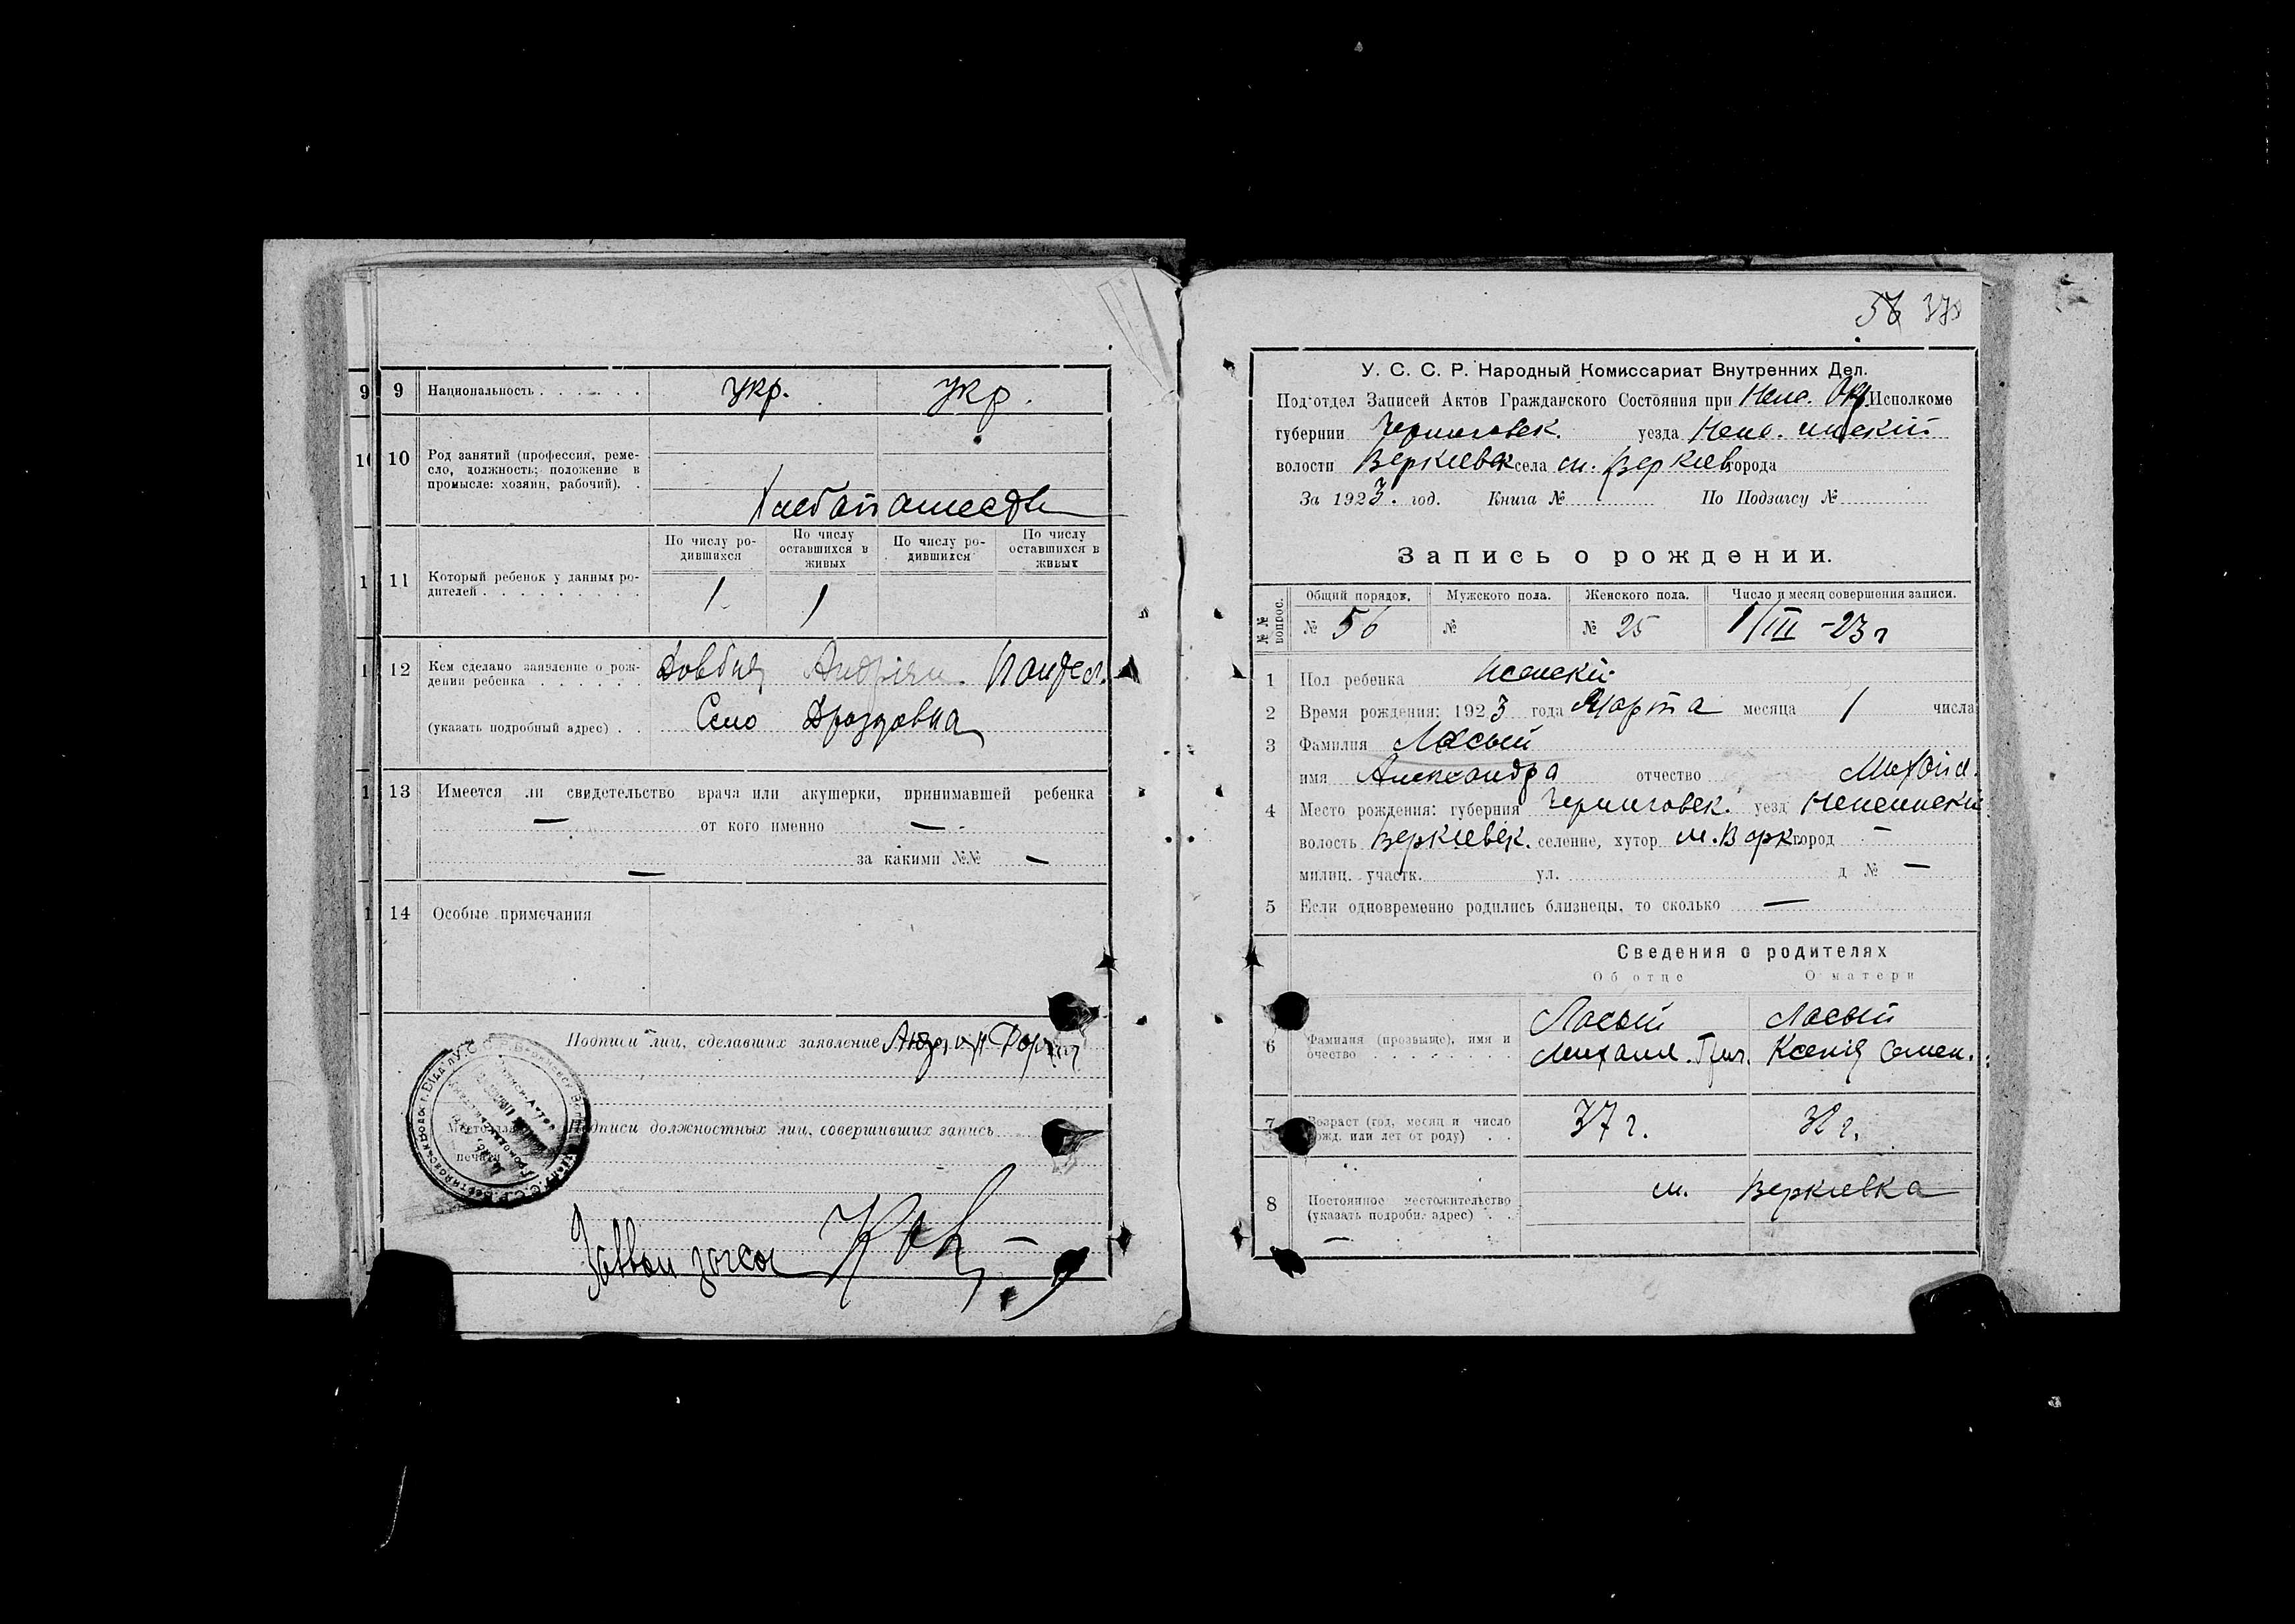 9 Национальность . . . . . . укр. укр.
10 Род занятий (профессия, реме-
сло, должность; положение в
промысле: хозяин, рабочий). .
По числу ро-
дившихся
По числу
оставшихся в
живых
По числу ро-
дившихся
По числу
оставшихся в
живых
11 Который ребенок у данных ро-
дителей . . . . . . . . . 1 1
12 Кем сделано заявление о рож-
дении ребенка . . . . . . Довбня
(указать подробный адрес) . . Село Дроздовка
13 Имеется ли свидетельство врача или акушерки, принимавшей ребенка
— от кого именно —
— за какими №№ —
14 Особые примечания
Подписи лиц, сделавших заявление
Место для
печати
Подписи должностных лиц, совершивших запись
56
У. С. С. Р. Народный Комиссариат Внутренних Дел.
Под‘отдел Записей Актов Гражданского Состояния при Исполкоме
губернии Черниговск. уезда
волости села м. города
За 1923. год. Книга № По Подзагсу №
Запись о рождении.
№ №
вопрос.
Общий порядок. Мужского пола. Женского пола. Число и месяц совершения записи.
№ 56 № № 25 1/III -23 г
1 Пол ребенка женский
2 Время рождения: 1923 года Марта месяца 1 числа
3 Фамилия Лосый
имя Александра отчество Михайл.
4 Место рождения: губерния Черниговск. уезд
волость Веркиевск. селение, хутор м. Верк. город —
милиц. участк. ул. д № —
5 Если одновременно родились близнецы, то сколько —
Сведения о родителях
Об отце О матери
6 Фамилия (прозвыще), имя и
очество . . . . . . . .
Лосый Лосый
Михаил. Григ. Ксения Семен.
7 Возраст (год, месяц и число
рожд. или лет от роду) . . 37 г. 32 г.
8 Постоянное местожительство
(указать подробн. адрес) . . м. Веркиевка